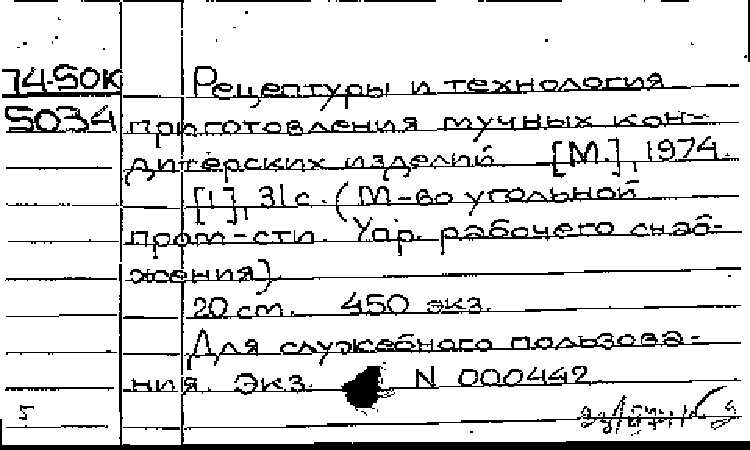 74-50К Рецептуры и технология
5034 приготовления мучных кон-
дитерских изделий [М.], 1974.
[1], 31 с. (М-во угольной
пром-сти. Упр. рабочего снаб-
жения)
20 см. 450 экз.
Для служебного пользова-
ния. Экз. N 000442
5